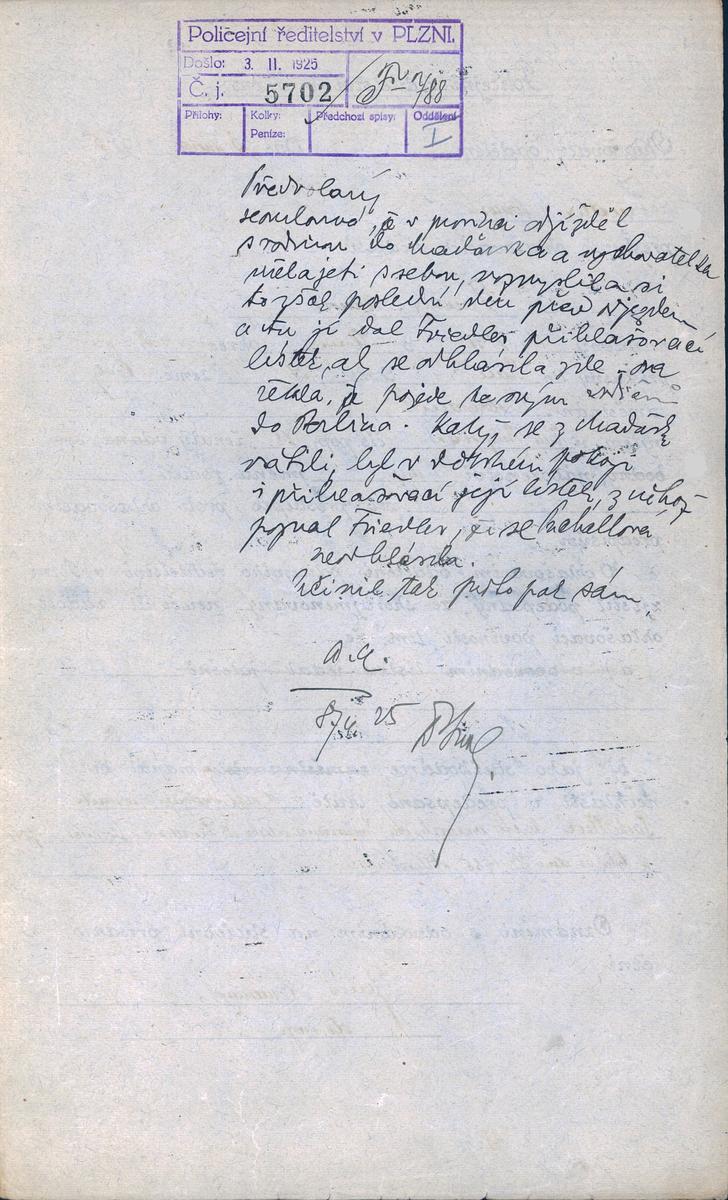 Policejní ředitelství v PLZNI.
Došlo: 3. II. 1925
Č. j. 5702
Přílohy: Kolky: Peníze: Předchozí spisy: Oddělení I
Předvolaný
že v odjížděl
s rodinou do Maďarska a vychovatelka
měla jeti s sebou, rozmyslila si
to však poslední den před odjezdem
a tu jí dal Friedler přihlašovací
lístek, aby se odhlásila zde, ona
řekla, že pojede se svým
do Berlína. Když se z Maďarska
vrátili, byl v pokoji
i přihlašovací její lístek, z něhož
poznal Friedler, že se
neodhlásila.
Učinil tak pak sám.
a.a.
25